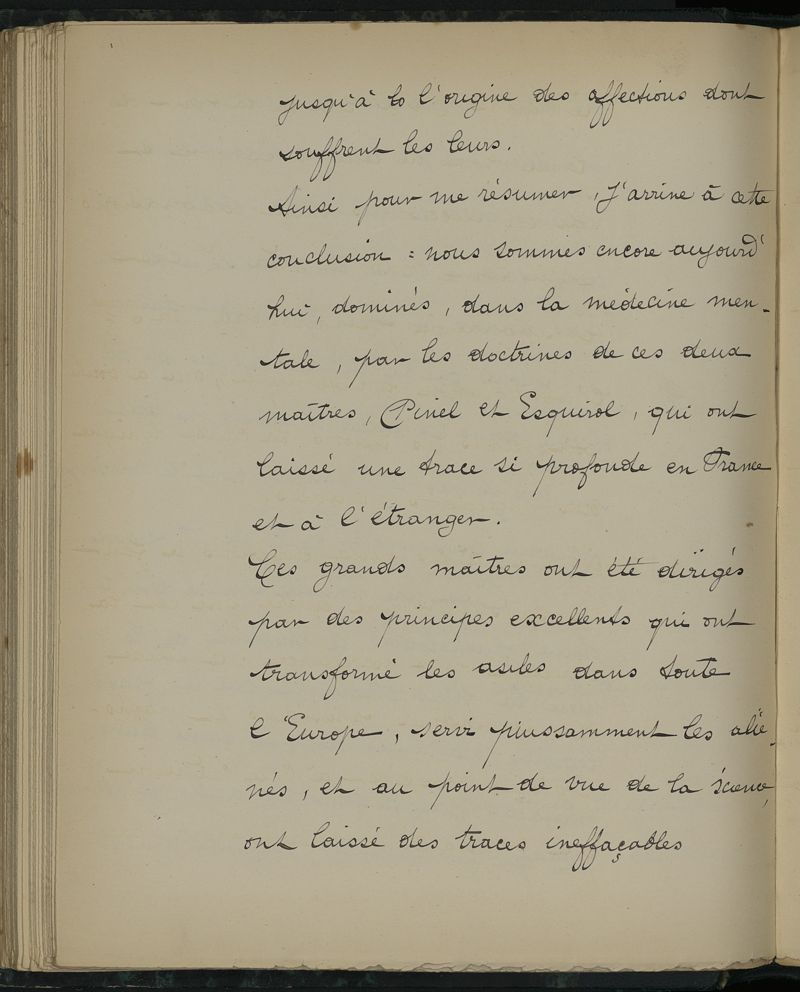 jusqu'à to l'origine des affections dont
souffrent les leurs.
Ainsi pour me résumer, j'arrive à cette
conclusion : nous sommes encore aujourd'
hui, dominés, dans la médecine men-
tale, par les doctrines de ces deux
maîtres, Pinel et Esquirol, qui ont
laissé une trace si profonde en France
et à l'étranger.
Ces grands maîtres ont été dirigés
par des principes excellents qui ont
transformé les asiles dans toute
l'Europe, servi puissamment les alié-
nés, et au point de vue de la science,
ont laissé des traces ineffaçables